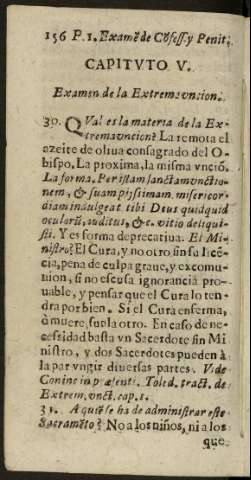 156 P. 1. Examẽ de Cõfess. y Penit.
CAPITVTO V.
Examen de la Extremavncion.
30. QVal es la materia de la Ex-
tremauncion? La remota el
azeite de oliua consagrado del O-
bispo. La proxima, la misma vnciõ.
La forma. Per istam sanctam vnctio-
nem, & suam pijssimam misericor-
diam indulgeat tibi Deus quidquid
oculorũ, auditus, &c. vitio deliqui-
sti. Y es forma deprecatiua. El Mi-
nistro? El Cura, y no otro sin su licẽ-
cia, pena de culpa graue, y excomu-
nion, si no escusa ignorancia pro-
uable, y pensar que el Cura lo ten-
dra por bien. Si el Cura enferma,
ò muere, suela otro. En caso de ne-
cessidad basta vn Sacerdote sin Mi
nistro, y dos Sacerdotes pueden à
la par vngir diuersas partes. Vide
Coninc in præsenti. Toled. tract. de
Extrem. vnct. cap. 1.
31. A quiẽ se ha de administrar este
Sacramẽto? No a los niños, ni a los
que